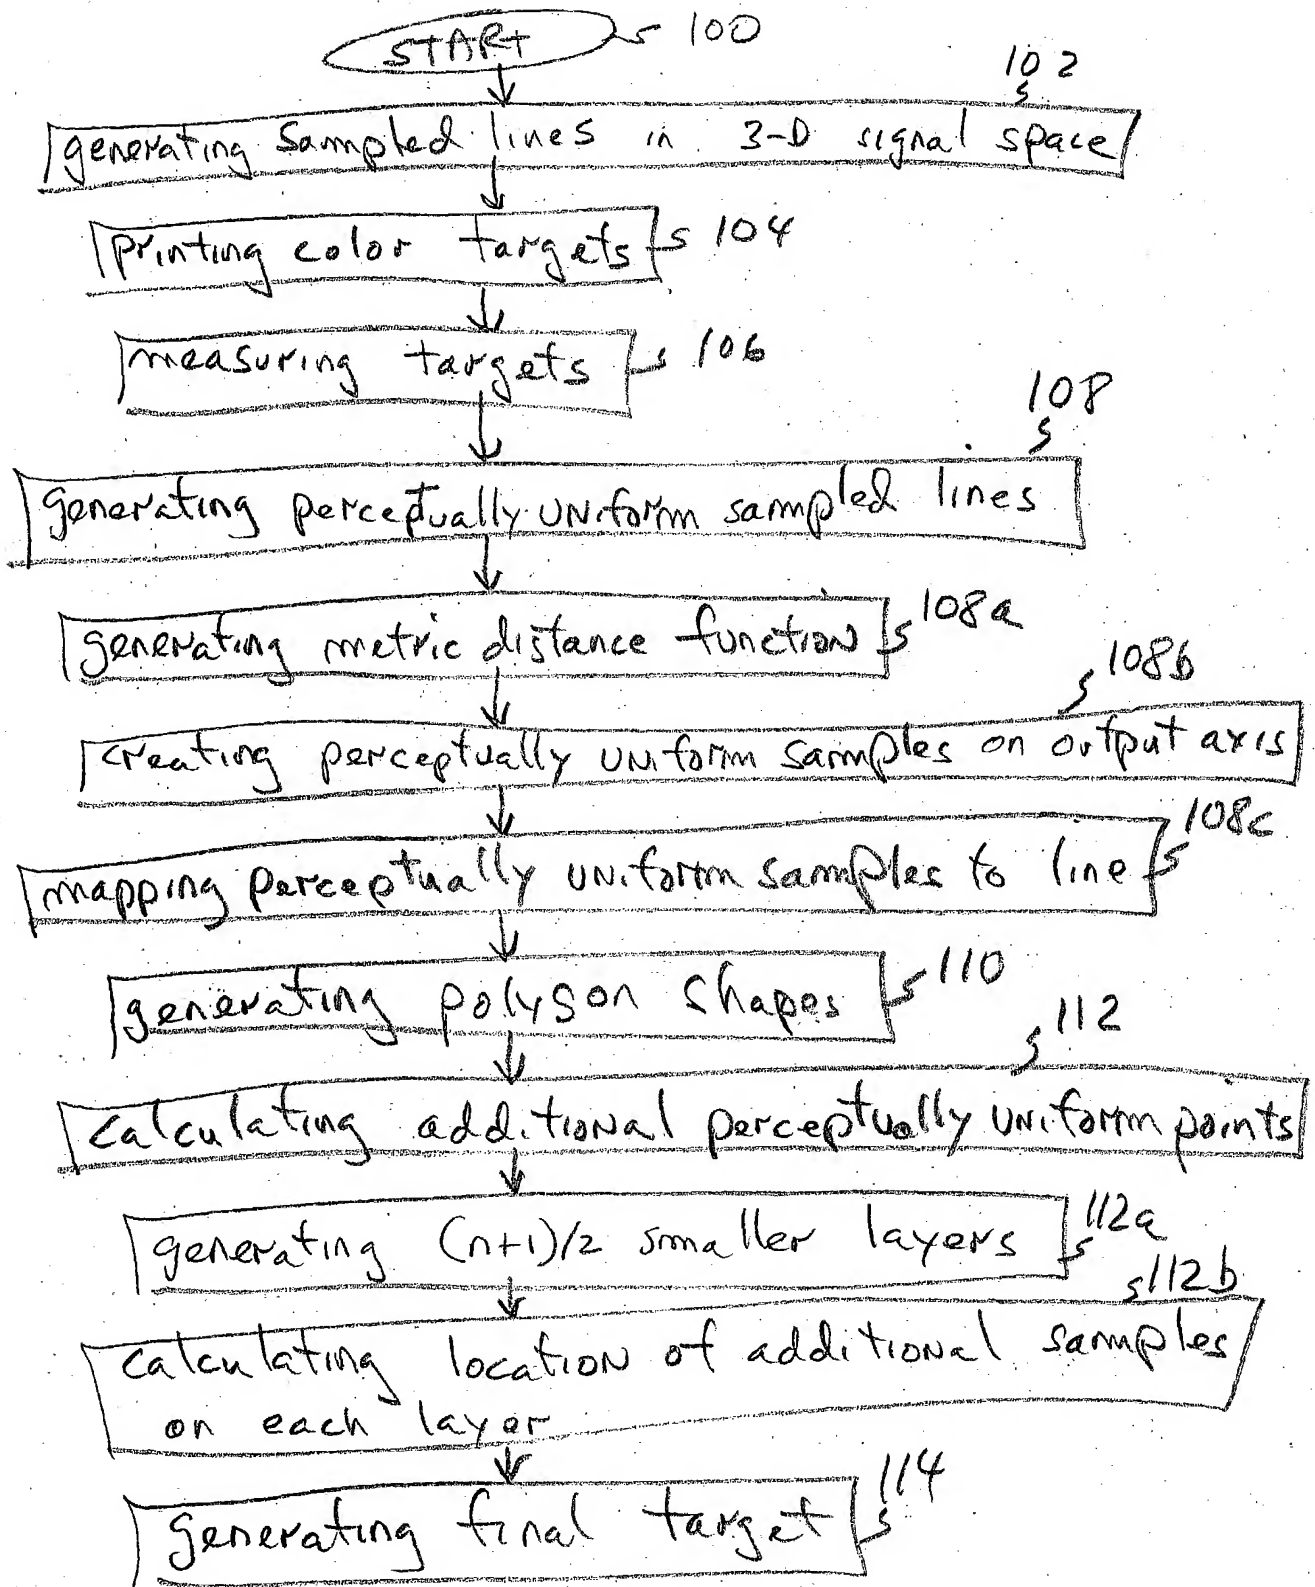 START 100
102
generating sampled lines in 3-D signal space
printing color targets 104
measuring targets 106
108
generating perceptually uniform sampled lines
generating metric distance function 108a
108b
creating perceptually uniform samples on output axis
108c
mapping perceptually uniform samples to line
generating polygon shapes 110
112
calculating additional perceptually uniform points
generating (n+1)/2 smaller layers 112a
112b
calculating location of additional samples
on each layer
generating final target 114